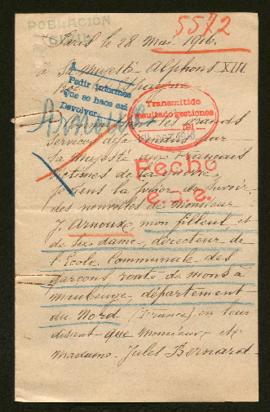 POBLACIÓN
CIVIL
5542
Paris le 28 Mai 1916.
à Sa Majesté Alphonse XIII
A
Pedir informes
que se hace así
Devolver
Transmitido
resultado gestiones
del
Arnoux
les grands
services
sa Majesté aux Français
victimes de la guerre
Fecho
e.n.e.
des nouvelles de Monsieur
J. Arnoux mon filleul et
de sa dame, directeur de
l'Ecole Communale des
garçons route de mons à
maubeuge, département
du Nord (France) en leur
disant que Monsieur et
Madame Jules Bernard